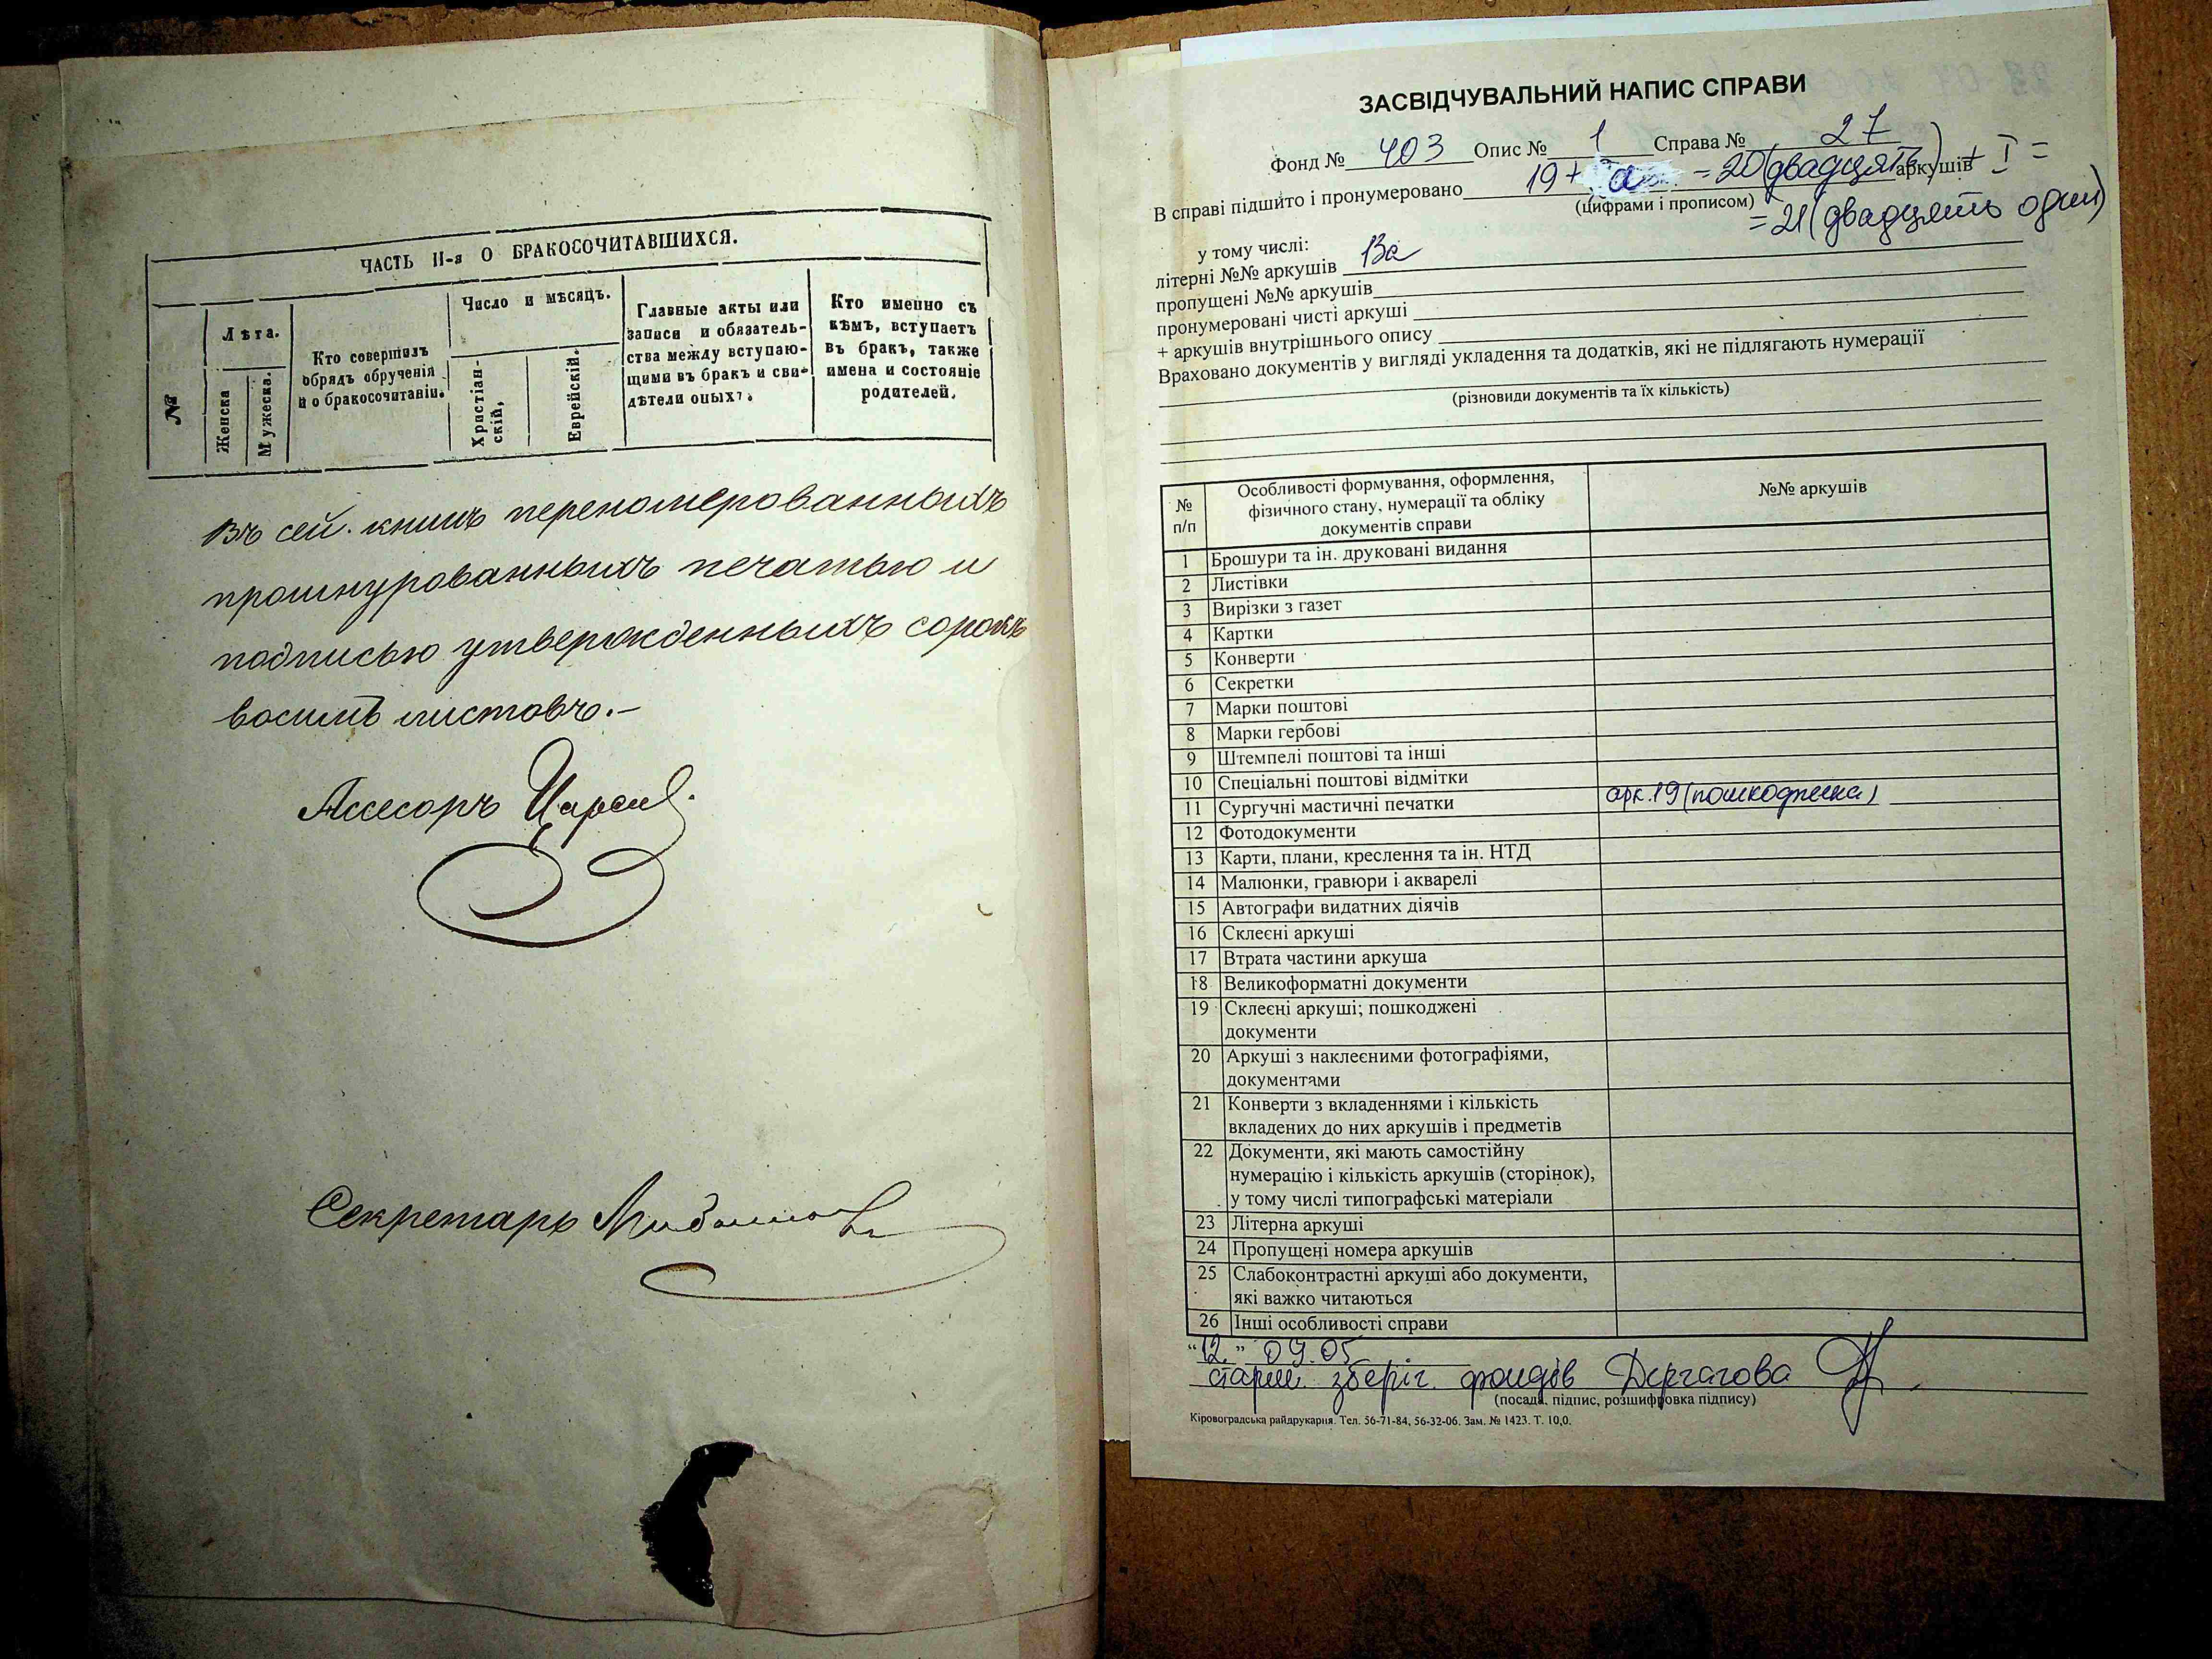 ЧАСТЬ II-я О БРАКОСОЧИТАВШИХСЯ.
№
Лѣта.
Женска
Мужеска.
Кто совершилъ
обрядъ обрученія
и о бракосочитаніи.
Число и мѣсяцъ.
Христіан-
скій,
Еврейскій.
Главные акты или
записи и обязатель-
ства между вступаю-
щими въ бракъ и сви-
дѣтели оныхъ.
Кто именно съ
кѣмъ, вступаетъ
въ бракъ, также
имена и состояніе
родителей.
Въ сей книгѣ перепомерованныхъ
прошнурованныхъ печатью и
подписью утвержденныхъ сорокъ
восимъ листовъ.-
Ассесоръ
Секретарь
ЗАСВІДЧУВАЛЬНИЙ НАПИС СПРАВИ
Фонд № 403 Опис № 1 Справа № 27
В справі підшито і пронумеровано 19 + = 20 (двадцять) аркушів + I =
(цифрами і прописом)
= 21 (двадцять один)
у тому числі:
літерні №№ аркушів 13а
пропущені №№ аркушів
пронумеровані чисті аркуші
+ аркушів внутрішнього опису
Враховано документів у вигляді укладення та додатків, які не підлягають нумерації
(різновиди документів та їх кількість)
№ п/п
Особливості формування, оформлення,
фізичного стану, нумерації та обліку
документів справи
№№ аркушів
1 Брошури та ін. друковані видання
2 Листівки
3 Вирізки з газет
4 Картки
5 Конверти
6 Секретки
7 Марки поштові
8 Марки гербові
9 Штемпелі поштові та інші
10 Спеціальні поштові відмітки
11 Сургучні мастичні печатки арк. 19 (пошкоджена)
12 Фотодокументи
13 Карти, плани, креслення та ін. НТД
14 Малюнки, гравюри і акварелі
15 Автографи видатних діячів
16 Склеєні аркуші
17 Втрата частини аркуша
18 Великоформатні документи
19 Склеєні аркуші; пошкоджені
документи
20 Аркуші з наклеєними фотографіями,
документами
21 Конверти з вкладеннями і кількість
вкладених до них аркушів і предметів
22 Документи, які мають самостійну
нумерацію і кількість аркушів (сторінок),
у тому числі типографські матеріали
23 Літерна аркуші
24 Пропущені номера аркушів
25 Слабоконтрастні аркуші або документи,
які важко читаються
26 Інші особливості справи
“12.” 09.05
старш. зберіг. фондів Дергачова
(посада, підпис, розшифровка підпису)
Кіровоградська райдрукарня. Тел. 56-71-84, 56-32-06. Зам. № 1423. Т. 10,0.